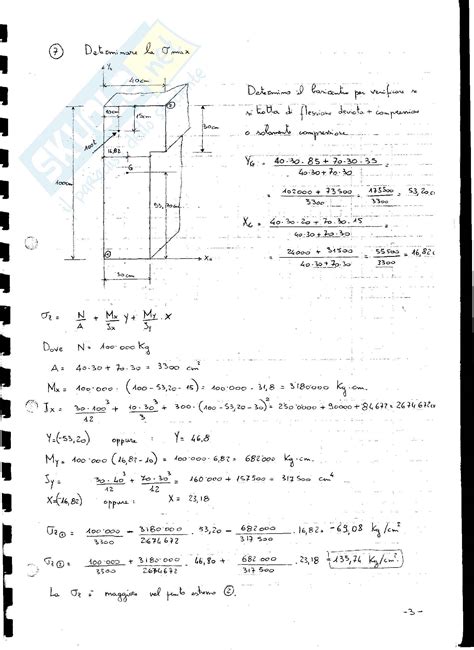 7 Determinare la σmax
Y
40cm
10cm
15cm
2
30cm
100t
16,82
G
100cm
53,20cm
1
X
30cm
Determino il baricentro per verificare se
si tratta di flessione deviata + compressione
o solamente compressione
YG = 40·30·85 + 70·30·35 / 40·30+70·30 =
= 102000 + 73500 / 3300 = 175500 / 3300 = 53,20
XG = 40·30·20 + 70·30·15 / 40·30+70·30 =
= 24000 + 31500 / 3300 = 55500 / 3300 = 16,82
σz = N/A + Mx/Jx Y + My/Jy · X
Dove N = 100·000 Kg
A = 40·30 + 70·30 = 3300 cm²
Mx = 100·000 · (100-53,20-15) = 100·000 · 31,8 = 3180000 Kg·cm.
Jx = 30·100³/12 + 10·30³/3 + 300·(100-53,20-30)² = 2500000 + 90000 + 84672 = 2674672
Y=(-53,20) oppure : Y = 46,8
My = 100·000 (16,82-10) = 100·000 · 6,82 = 682000 Kg·cm.
Jy = 30·40³/12 + 70·30³/12 = 160000 + 157500 = 317500 cm⁴
X=(-16,82) oppure : X = 23,18
σz① = 100·000/3300 - 3180000/2674672 · 53,20 - 682000/317500 · 16,82 = -69,08 Kg/cm²
σz② = 100000/3300 + 3180000/2674672 · 46,80 + 682000/317500 · 23,18 = 135,74 Kg/cm²
La σz è maggiore nel punto estremo ②.
-3-